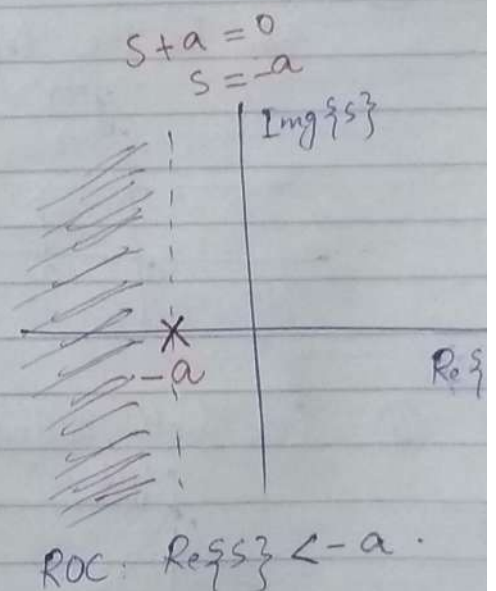 S+a=0
S=-a
Img{s}
-a
Re{s
ROC: Re{s} <-a.